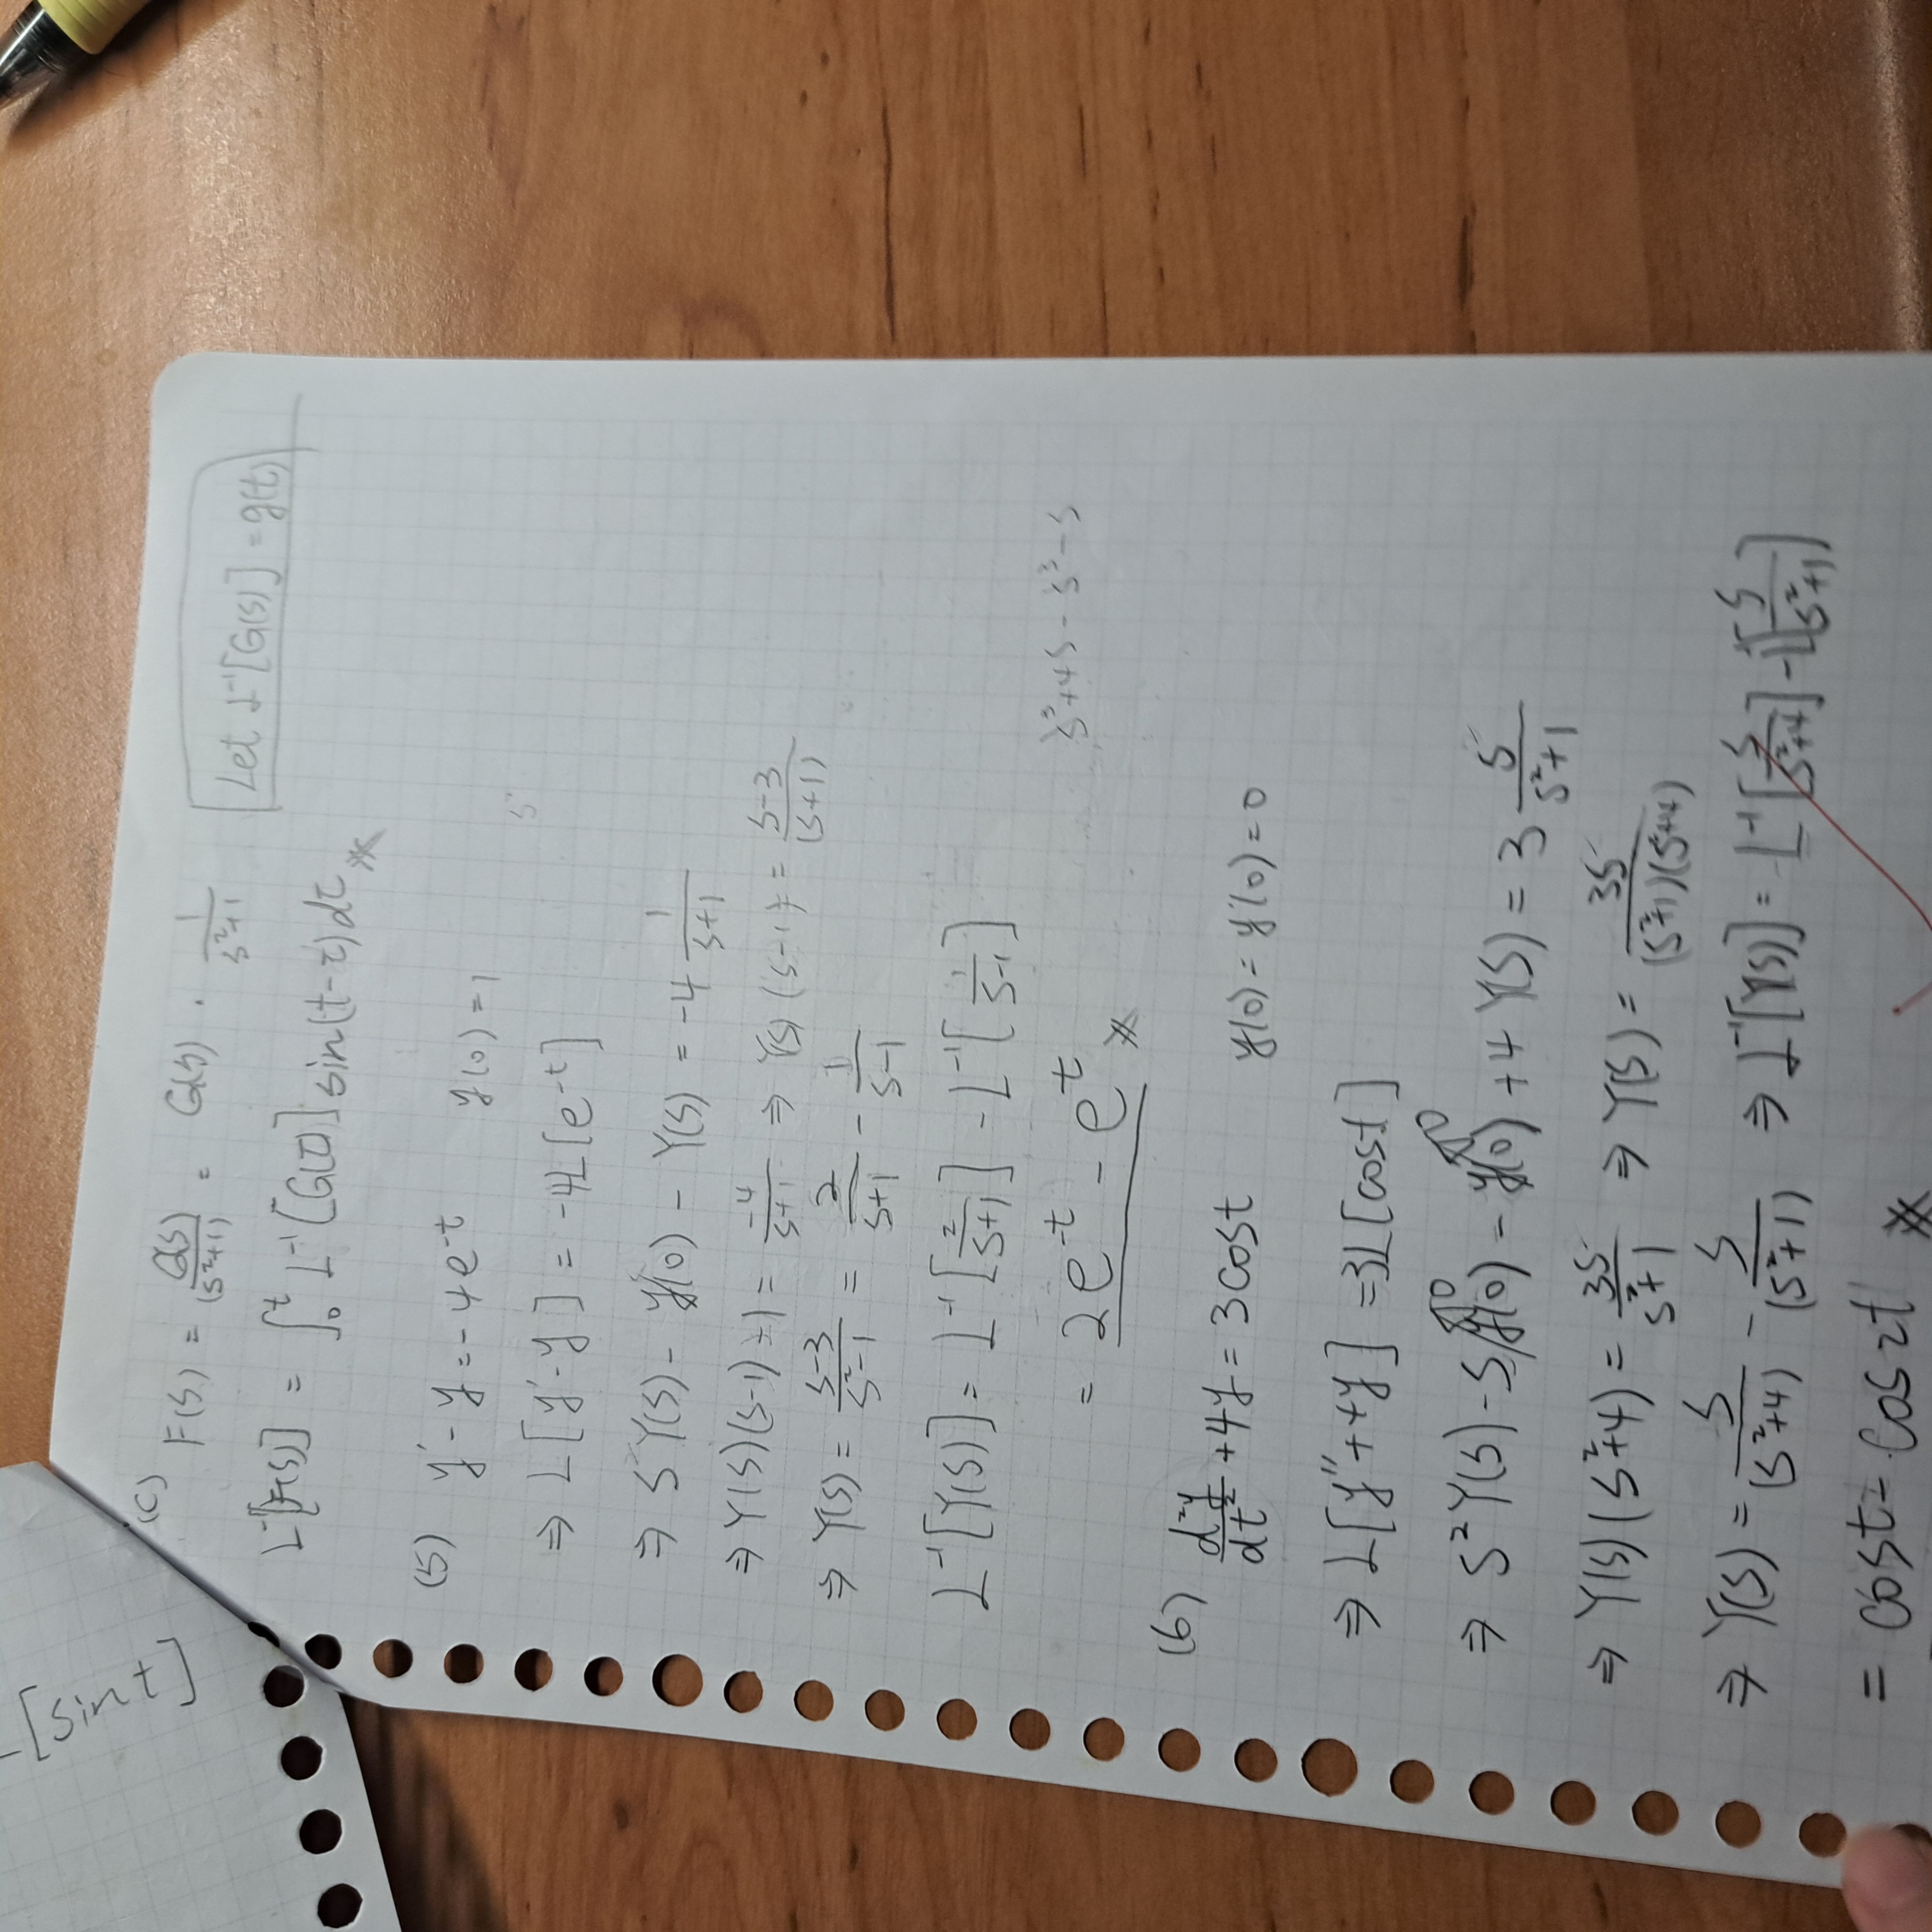 [sint]
(c) F(s) = G(s)/(s²+1) = G(s) · 1/s²+1
Let L⁻¹[G(s)] = g(t)
L⁻¹[F(s)] = ∫₀ᵗ L⁻¹[G(τ)] sin(t-τ)dτ ※
(5) y' - y = -4e⁻ᵗ y(0) = 1
⇒ L[y' - y] = -4L[e⁻ᵗ]
⇒ sY(s) - y(0) - Y(s) = -4 1/s+1
⇒ Y(s)(s-1) + 1 = -4/s+1 ⇒ Y(s)(s-1) = s-3/(s+1)
⇒ Y(s) = s-3/s²-1 = 2/s+1 - 1/s-1
L⁻¹[Y(s)] = L⁻¹[2/s+1] - L⁻¹[1/s-1]
= 2e⁻ᵗ - eᵗ ※
s³+4s - s³-s
(6) d²y/dt² + 4y = 3cost y(0) = y'(0) = 0
⇒ L[y'' + 4y] = 3L[cost]
⇒ s²Y(s) - sy(0) - y'(0) + 4Y(s) = 3 s/s²+1
⇒ Y(s)(s²+4) = 3s/s²+1 ⇒ Y(s) = 3s/(s²+1)(s²+4)
⇒ Y(s) = s/(s²+4) - s/(s²+1) ⇒ L⁻¹[Y(s)] = L⁻¹[s/s²+4] - L⁻¹[s/s²+1]
= cost - cos2t ※